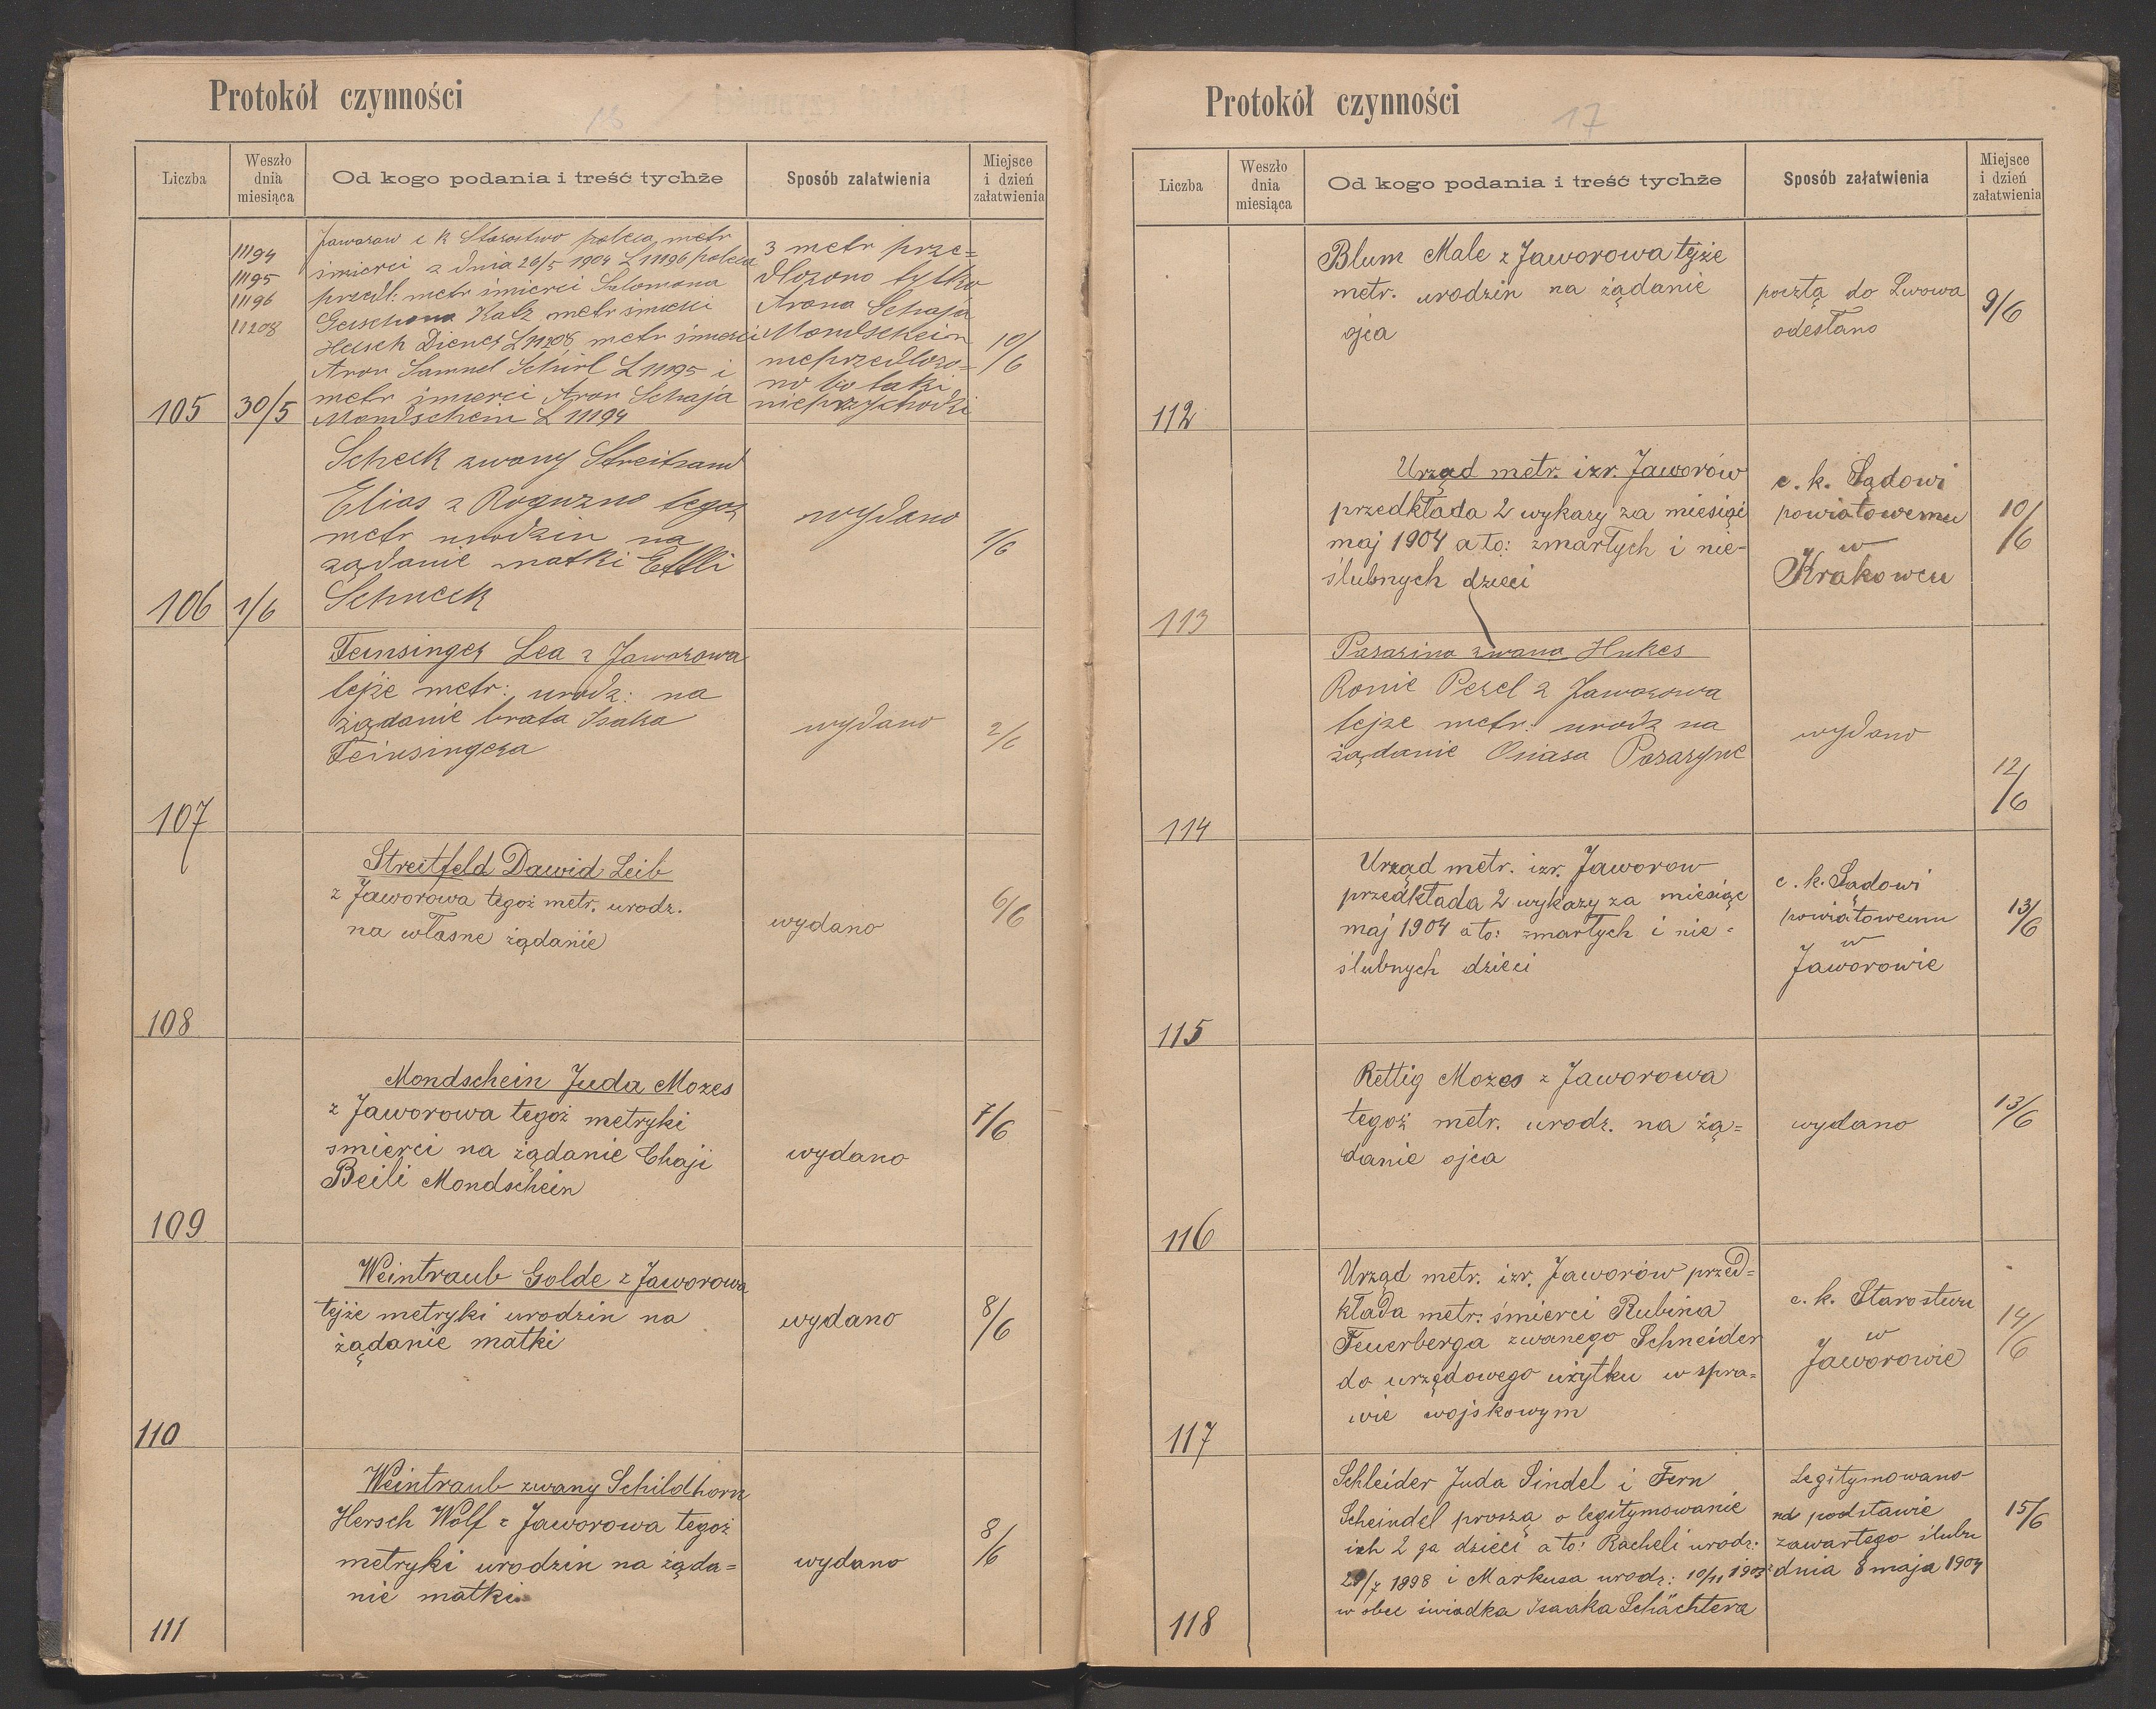 Protokół czynności
16
Liczba
Weszło dnia miesiąca
Od kogo podania i treść tychże
Sposób załatwienia
Miejsce i dzień załatwienia
11194
11195
11196
11208
105
30/5
Jaworow c k Starostwo poleca metr
śmierci z dnia 26/5 1904 L 11196 poleca
przedł: metr śmierci Salomona
Gerschona Katz metr śmierci
Hersch Diener L 11208 metr śmierci
Aron Samuel Schürl L 11195 i
metr śmierci Aron Schaja
Mondschein L 11194
3 metr prze=
dłozono tylko
Arona Schaja
Mondschein
nieprzedłozo=
no bo taki
nieprzychodzi
10/6
106
1/6
Scheck zwany Streitsand
Elias z Roguzno tegoz
metr urodzin na
ządanie matki Ettli
Schneck
wydano
1/6
107
Feinsinger Lea z Jaworowa
tejże metr: urodz: na
żądanie brata Isaka
Feinsingera
wydano
2/6
108
Streitfeld Dawid Leib
z Jaworowa tegoż metr. urodz.
na własne żądanie
wydano
6/6
109
Mondschein Juda Mozes
z Jaworowa tegoż metryki
smierci na żądanie Chaji
Beili Mondschein
wydano
7/6
110
Weintraub Golde z Jaworowa
tejże metryki urodzin na
żądanie matki
wydano
8/6
111
Weintraub zwany Schildhorn
Hersch Wolf z Jaworowa tegoż
metryki urodzin na żąda=
nie matki
wydano
8/6
Protokół czynności
17
Liczba
Weszło dnia miesiąca
Od kogo podania i treść tychże
Sposób załatwienia
Miejsce i dzień załatwienia
112
Blum Male z Jaworowa tejże
metr. urodzin na żądanie
ojca
pocztą do Lwowa
odesłano
9/6
113
Urząd metr. izr. Jaworów
przedkłada 2 wykazy za miesiąc
maj 1904 a to: zmarłych i nie-
ślubnych dzieci
c. k. Sądowi
powiatowemu
w
Krakowcu
10/6
114
Pasarina zwana Hukes
Ronie Perel z Jaworowa
tejze metr: urodz na
żądanie Oniasa Pasaryne
wydano
12/6
115
Urząd metr. izr. Jaworow
przedkłada 2 wykazy za miesiąc
maj 1904 a to: zmarłych i nie=
ślubnych dzieci
c. k. Sądowi
powiatowemu
w
Jaworowie
13/6
116
Rettig Mozes z Jaworowa
tegoż metr. urodz. na żą=
danie ojca
wydano
13/6
117
Urząd metr. izr. Jaworów przed=
kłada metr: śmierci Rubina
Feuerberga zwanego Schneider
do urzędowego użytku w spra=
wie wojskowym
c. k. Starostwu
w
Jaworowie
14/6
118
Schleider Juda Sindel i Fern
Scheindel proszą o legitymowanie
ich 2 ga dzieci a to: Racheli urodz:
/7 1898 i Markusa urodz: 10/11 1903
w obec świadka Isaaka Schächtera
Legitymowano
na podstawie
zawartego ślubu
dnia 8 maja 1904
15/6